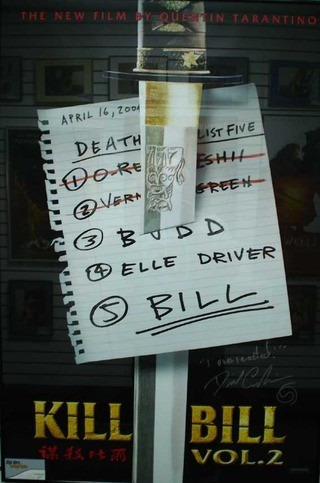 THE NEW FILM BY QUENTIN TARANTINO
APRIL 16, 200
DEATH LIST FIVE
① O-RE ESHII
② VERN GREEN
③ BUDD
④ ELLE DRIVER
⑤ BILL
KILL BILL
謀殺比爾 VOL.2